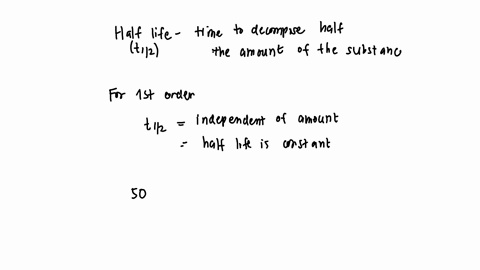 Half life - time to decompose half
(t1/2) the amount of the substanc
For 1st order
t1/2 = independent of amount
= half life is constant
50